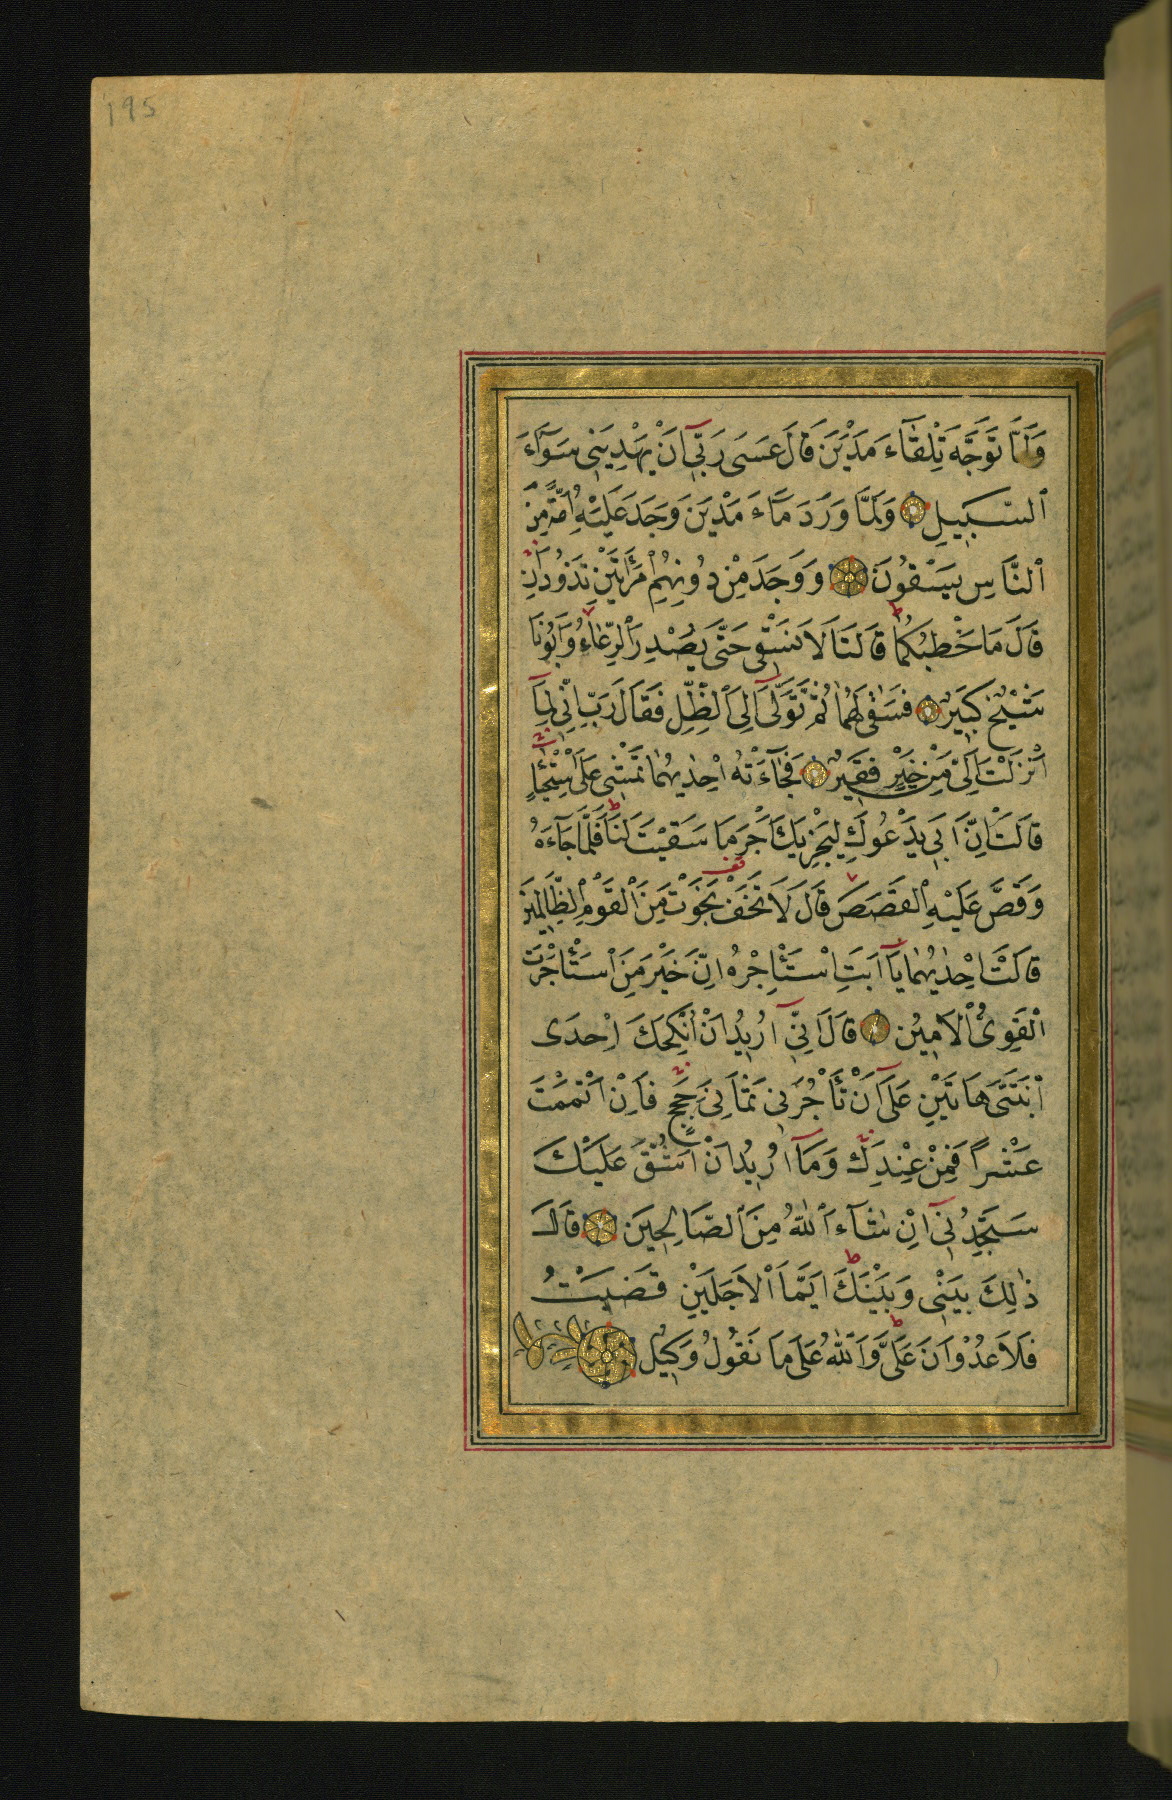 195
وَلَمَّا تَوَجَّهَ تِلْقَآءَ مَدْيَنَ قَالَ عَسٰى رَبّ۪ٓى اَنْ يَهْدِيَن۪ى سَوَآءَ
ٱلسَّب۪يلِ وَلَمَّا وَرَدَ مَآءَ مَدْيَنَ وَجَدَ عَلَيْهِ اُمَّةً مِنَ
ٱلنَّاسِ يَسْقُونَ وَوَجَدَ مِنْ دُونِهِمُ ٱمْرَاَتَيْنِ تَذُودَانِ
قَالَ مَا خَطْبُكُمَا قَالَتَا لَا نَسْق۪ى حَتّٰى يُصْدِرَ ٱلرِّعَآءُ وَاَبُونَا
شَيْخٌ كَب۪يرٌ فَسَقٰى لَهُمَا ثُمَّ تَوَلّٰٓى اِلَى ٱلظِّلِّ فَقَالَ رَبِّ اِنّ۪ى لِمَٓا
اَنْزَلْتَ اِلَىَّ مِنْ خَيْرٍ فَق۪يرٌ فَجَآءَتْهُ اِحْدٰيهُمَا تَمْش۪ى عَلَى ٱسْتِحْيَآءٍ
قَالَتْ اِنَّ اَب۪ى يَدْعُوكَ لِيَجْزِيَكَ اَجْرَ مَا سَقَيْتَ لَنَا فَلَمَّا جَآءَهُ
وَقَصَّ عَلَيْهِ ٱلْقَصَصَ قَالَ لَا تَخَفْ نَجَوْتَ مِنَ ٱلْقَوْمِ ٱلظَّالِم۪ينَ
قَالَتْ اِحْدٰيهُمَا يَٓا اَبَتِ ٱسْتَأْجِرْهُ اِنَّ خَيْرَ مَنِ ٱسْتَأْجَرْتَ
ٱلْقَوِىُّ ٱلْاَم۪ينُ قَالَ اِنّ۪ٓى اُر۪يدُ اَنْ اُنْكِحَكَ اِحْدَى
ٱبْنَتَىَّ هَاتَيْنِ عَلٰٓى اَنْ تَأْجُرَن۪ى ثَمَانِىَ حِجَجٍ فَاِنْ اَتْمَمْتَ
عَشْرًا فَمِنْ عِنْدِكَ وَمَٓا اُر۪يدُ اَنْ اَشُقَّ عَلَيْكَ
سَتَجِدُن۪ٓى اِنْ شَآءَ ٱللّٰهُ مِنَ ٱلصَّالِح۪ينَ قَالَ
ذٰلِكَ بَيْن۪ى وَبَيْنَكَ اَيَّمَا ٱلْاَجَلَيْنِ قَضَيْتُ
فَلَا عُدْوَانَ عَلَىَّ وَٱللّٰهُ عَلٰى مَا نَقُولُ وَك۪يلٌ